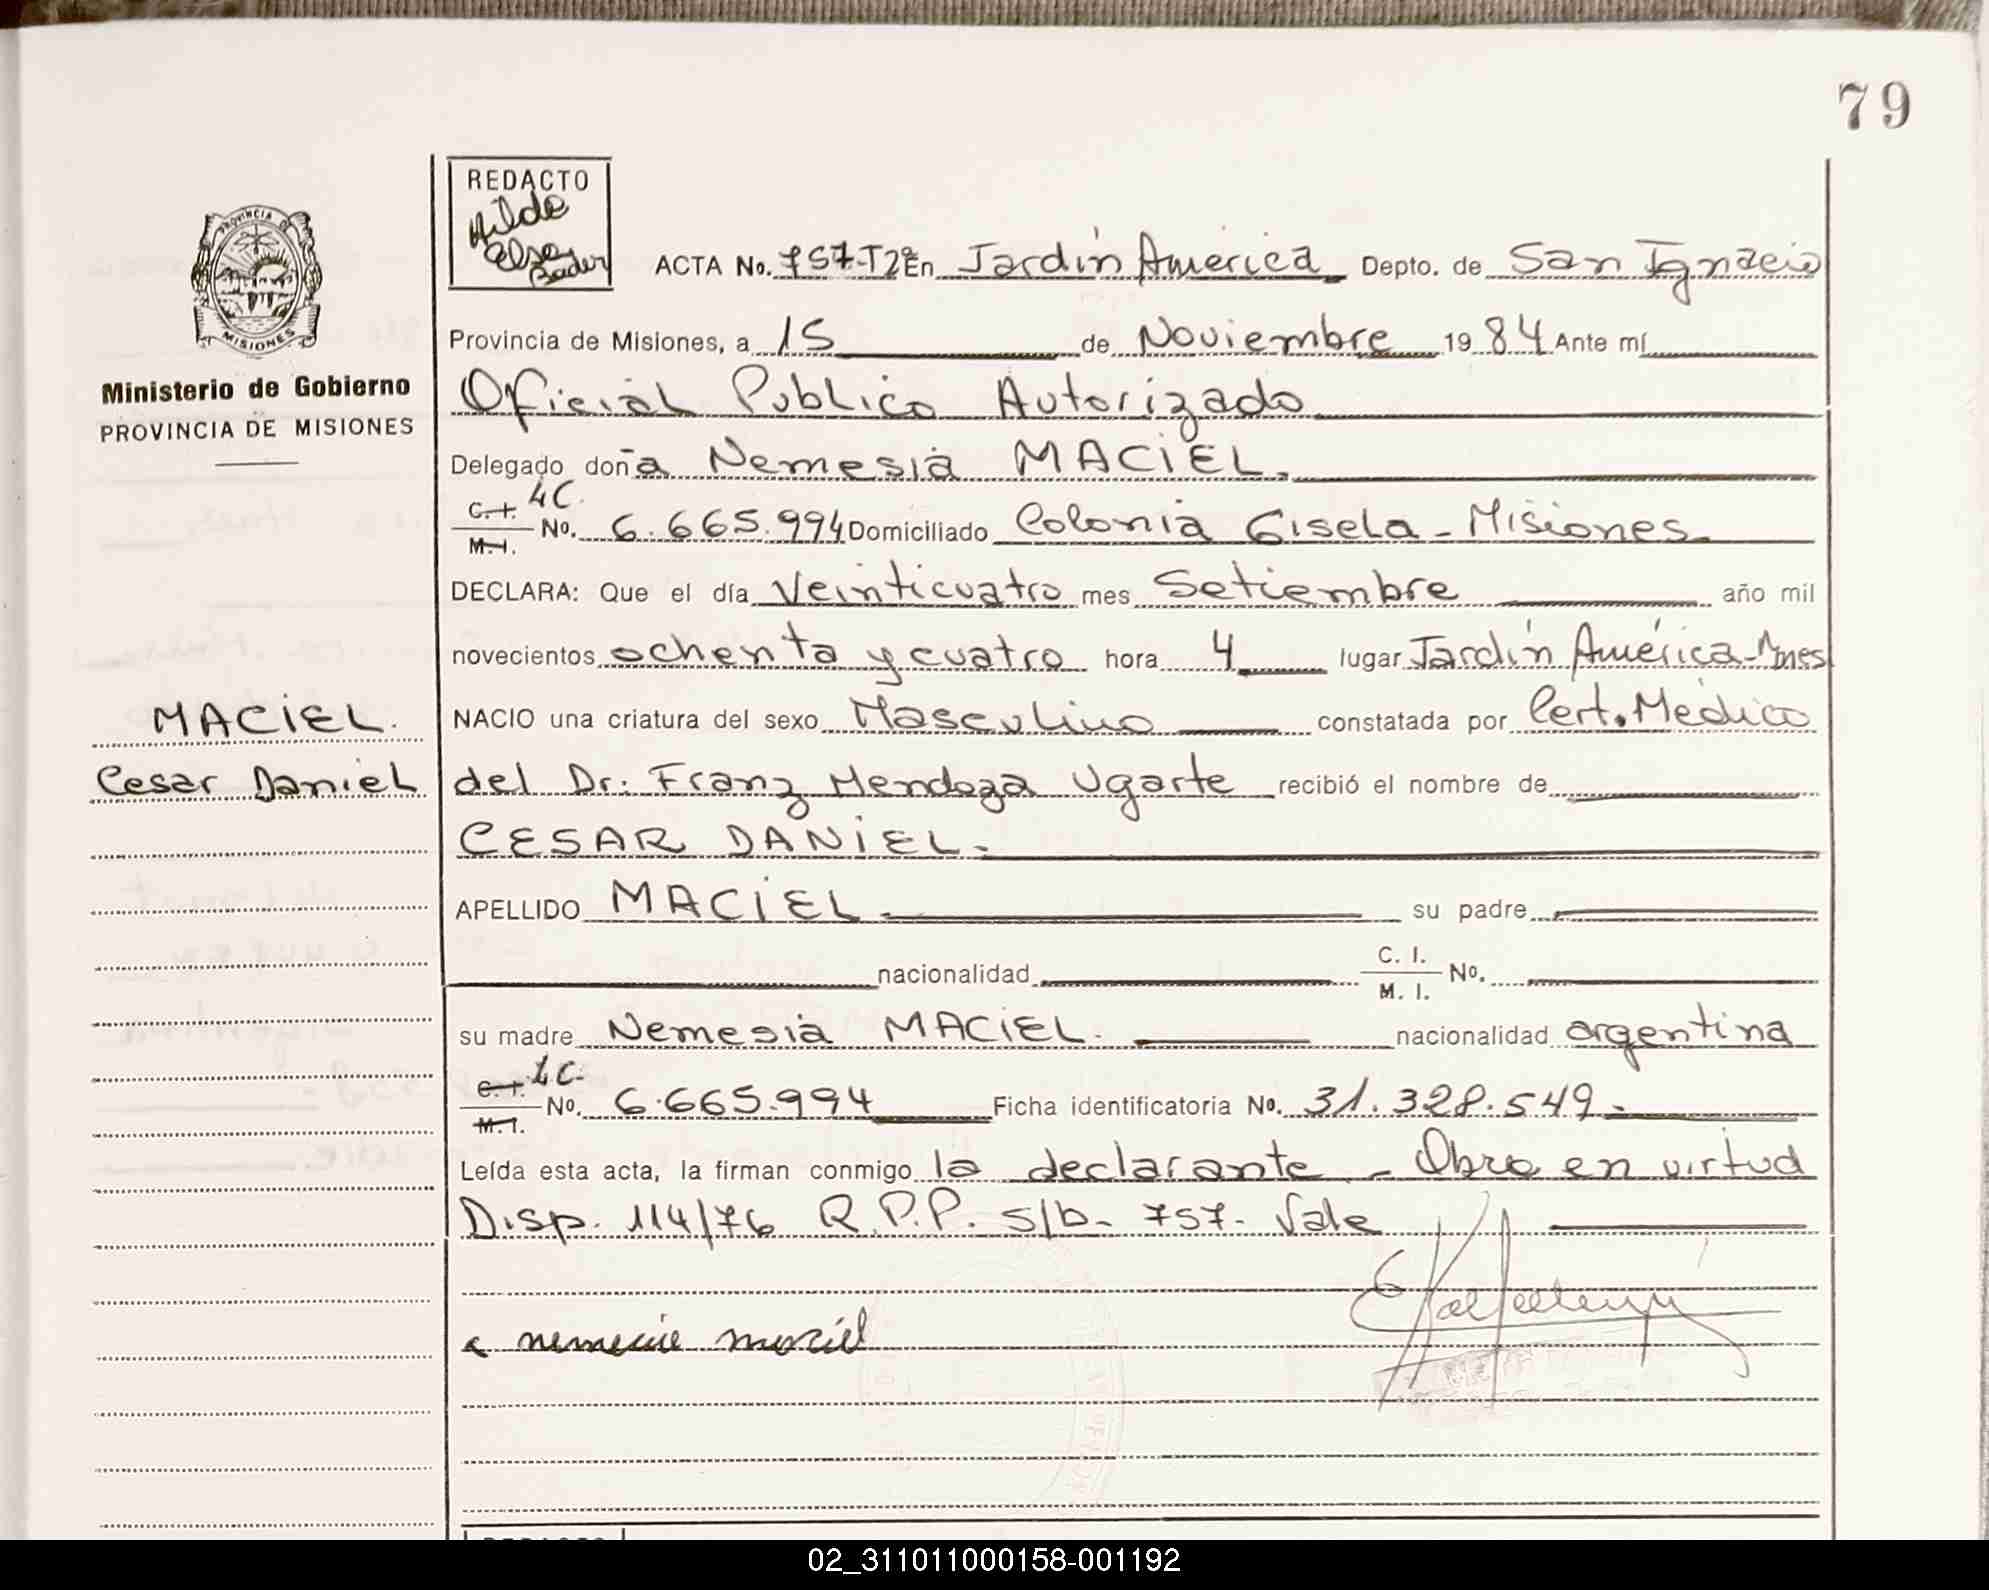 79
REDACTO
Hilda
Elsa
Bader
PROVINCIA DE
MISIONES
Ministerio de Gobierno
PROVINCIA DE MISIONES
ACTA No. 757-T2º En Jardín América Depto. de San Ignacio
Provincia de Misiones, a 15 de Noviembre 19 84 Ante mí
Oficial Publico Autorizado
Delegado doña Nemesia MACIEL.
C.I. LC.
M.I. No. 6.665.994 Domiciliado Colonia Gisela - Misiones
DECLARA: Que el día Veinticuatro mes Setiembre año mil
novecientos ochenta y cuatro hora 4 lugar Jardín América-Mnes
MACIEL.
Cesar Daniel
NACIO una criatura del sexo Masculino constatada por Cert. Médico
del Dr: Franz Mendoza Ugarte recibió el nombre de
CESAR DANIEL.
APELLIDO MACIEL su padre
nacionalidad C. I. M. I. No.
su madre Nemesia MACIEL. nacionalidad argentina
C.I. LC.
M.I. No. 6.665.994 Ficha identificatoria No. 31.328.549.
Leída esta acta, la firman conmigo la declarante - Obra en virtud
Disp. 114/76 R.P.P. s/b- 757- Vale
nemecie maciel
02_311011000158-001192